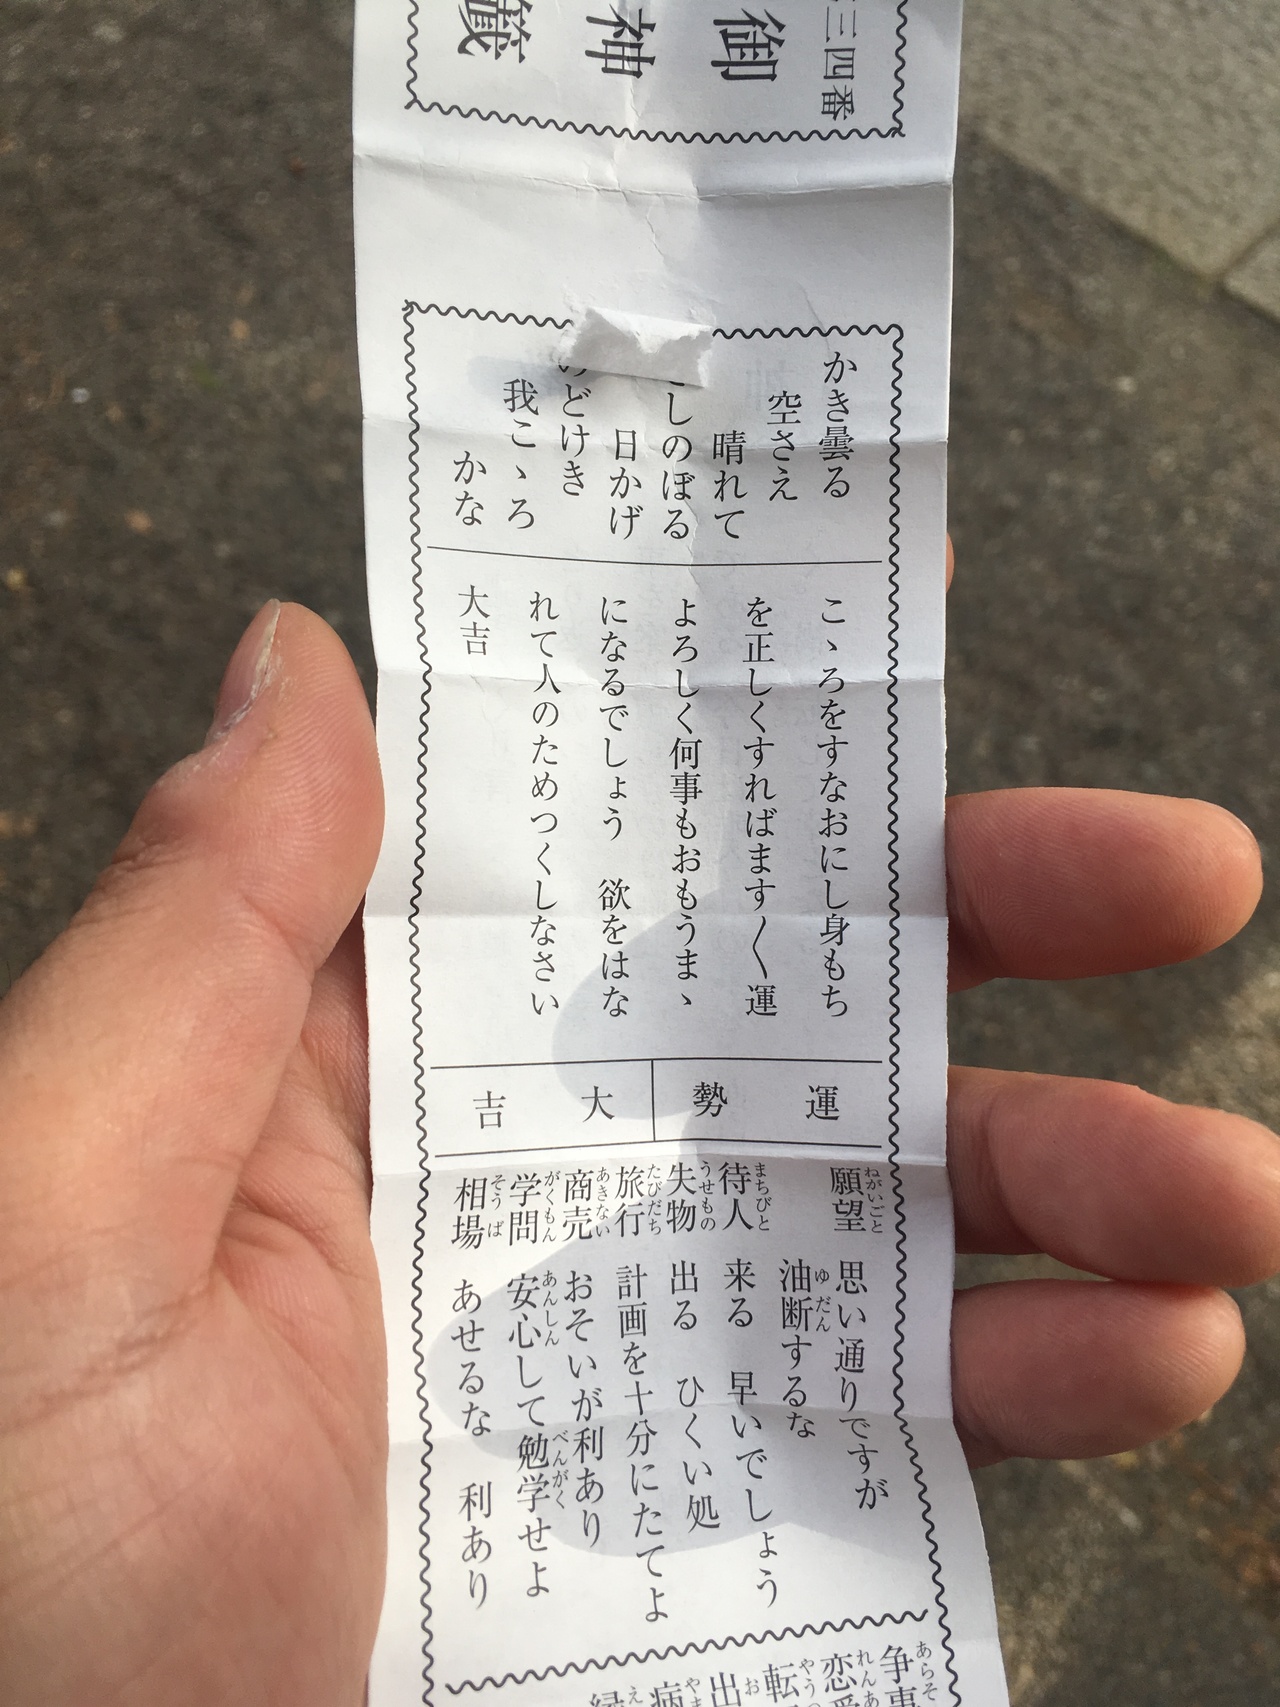 三四番
御
神
籤
かき曇る
空さえ
晴れて
さしのぼる
日かげ
のどけき
我こゝろ
かな
こゝろをすなおにし身もち
を正しくすればます〳〵運
よろしく何事もおもうまゝ
になるでしょう 欲をはな
れて人のためつくしなさい
大吉
運勢
大吉
願望 ねがいごと 思い通りですが
油断するな ゆだん
待人 まちびと 来る 早いでしょう
失物 うせもの 出る ひくい処
旅行 たびだち 計画を十分にたてよ
商売 あきない おそいが利あり
学問 がくもん 安心して勉学せよ あんしん べんがく
相場 そうば あせるな 利あり
争事 あらそ
恋愛 れんあ
転
出
病
縁